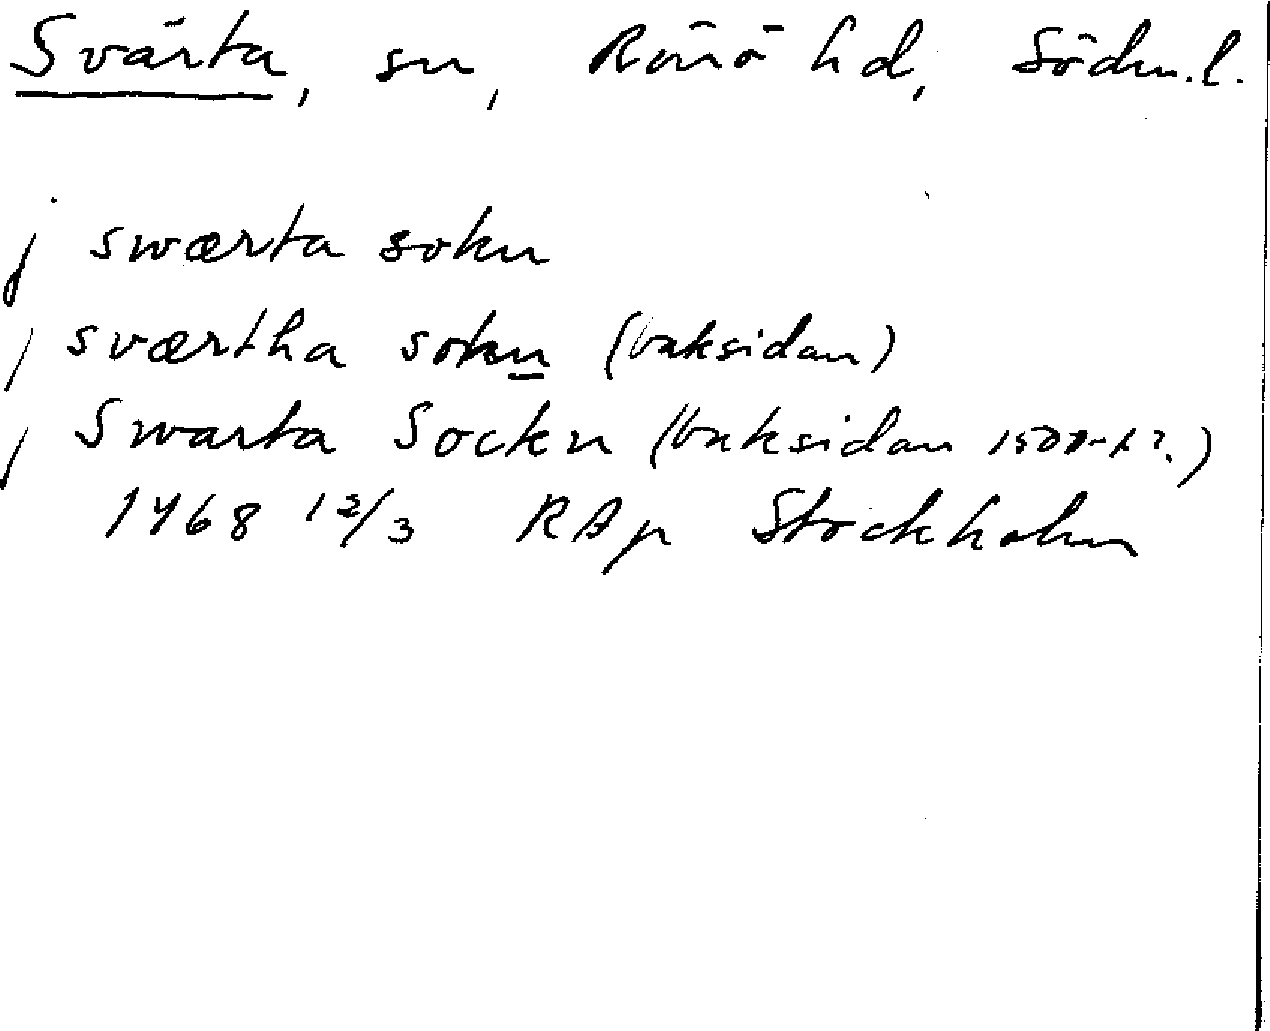 Svärta, sn, Rönö hd, Södm.l.
j swærta sokn
j sværtha sokn (baksidan)
j Swarta Sockn (baksidan 1500-t?.)
1468 12/3 RAp Stockholm